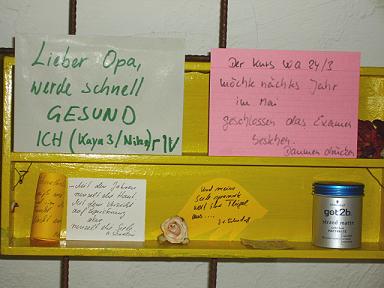 Lieber Opa,
werde schnell
GESUND
ICH (Kaya 3/Niko)
Der Kurs WQ 24/3
möchte nächstes Jahr
im Mai
geschlossen das Examen
bestehen.
Daumen drücken
...Mit den Jahren
runzelt die Haut
Mit dem Verzicht
auf Begeisterung
aber
runzelt die Seele
Und meine
Seele spannt
weit ihre Flügel
aus....
got2b
strand matte